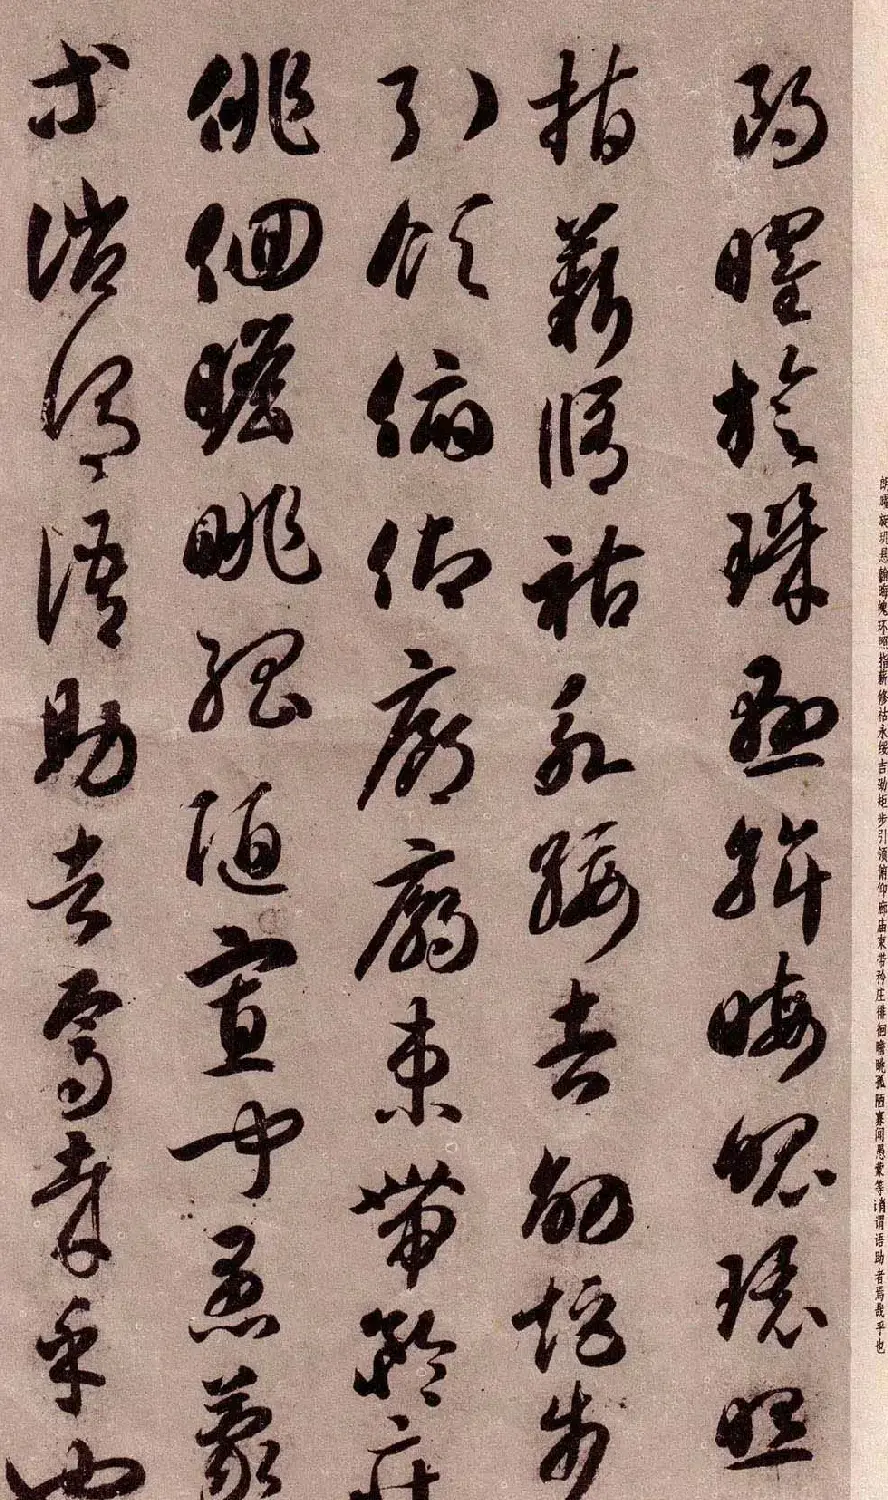 朗曜旋璣懸斡晦魄環照
指薪脩祜永綏吉劭矩步
引領俯仰廊廟束帶矜莊
徘徊瞻眺孤陋寡聞愚蒙
等誚謂語助者焉哉乎也
朗曜旋玑悬斡晦魄环照指薪修祜永绥吉劭矩步引领俯仰廊庙束带矜庄徘徊瞻眺孤陋寡闻愚蒙等诮谓语助者焉哉乎也